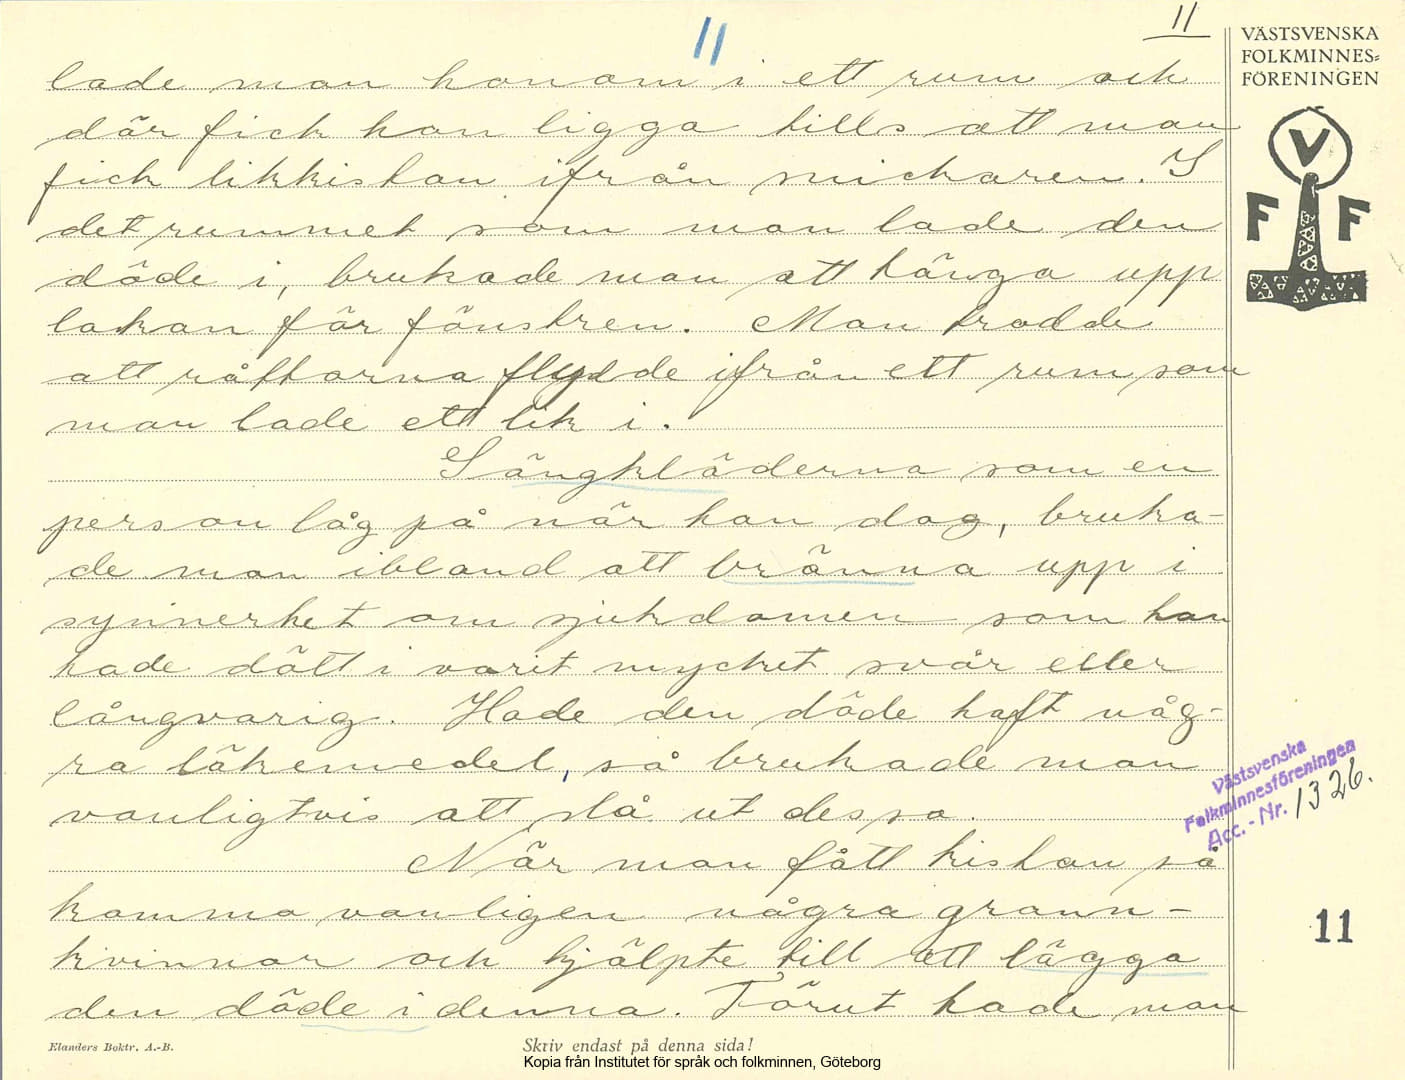 11
11
VÄSTSVENSKA
FOLKMINNES=
FÖRENINGEN
V
F F
lade man honom i ett rum och
där fick han ligga tills att man
fick likkistan ifrån snickaren. I
det rummet som man lade den
döde i, brukade man att hänga upp
lakan för fönstren. Man trodde
att råttorna flydde ifrån ett rum som
man lade ett lik i.
Sängkläderna som en
person låg på när han dog, bruka-
de man ibland att bränna upp i
synnerhet om sjukdomen som han
hade dött i varit mycket svår eller
långvarig. Hade den döde haft någ-
ra läkemedel, så brukade man
vanligtvis att slå ut dessa.
När man fått kistan så
komma vanligen några grann-
kvinnor och hjälpte till att lägga
den döde i denna. Förut hade man
Västsvenska
Folkminnesföreningen
Acc. - Nr. 1326.
11
Elanders Boktr. A.-B.
Skriv endast på denna sida!
Kopia från Institutet för språk och folkminnen, Göteborg